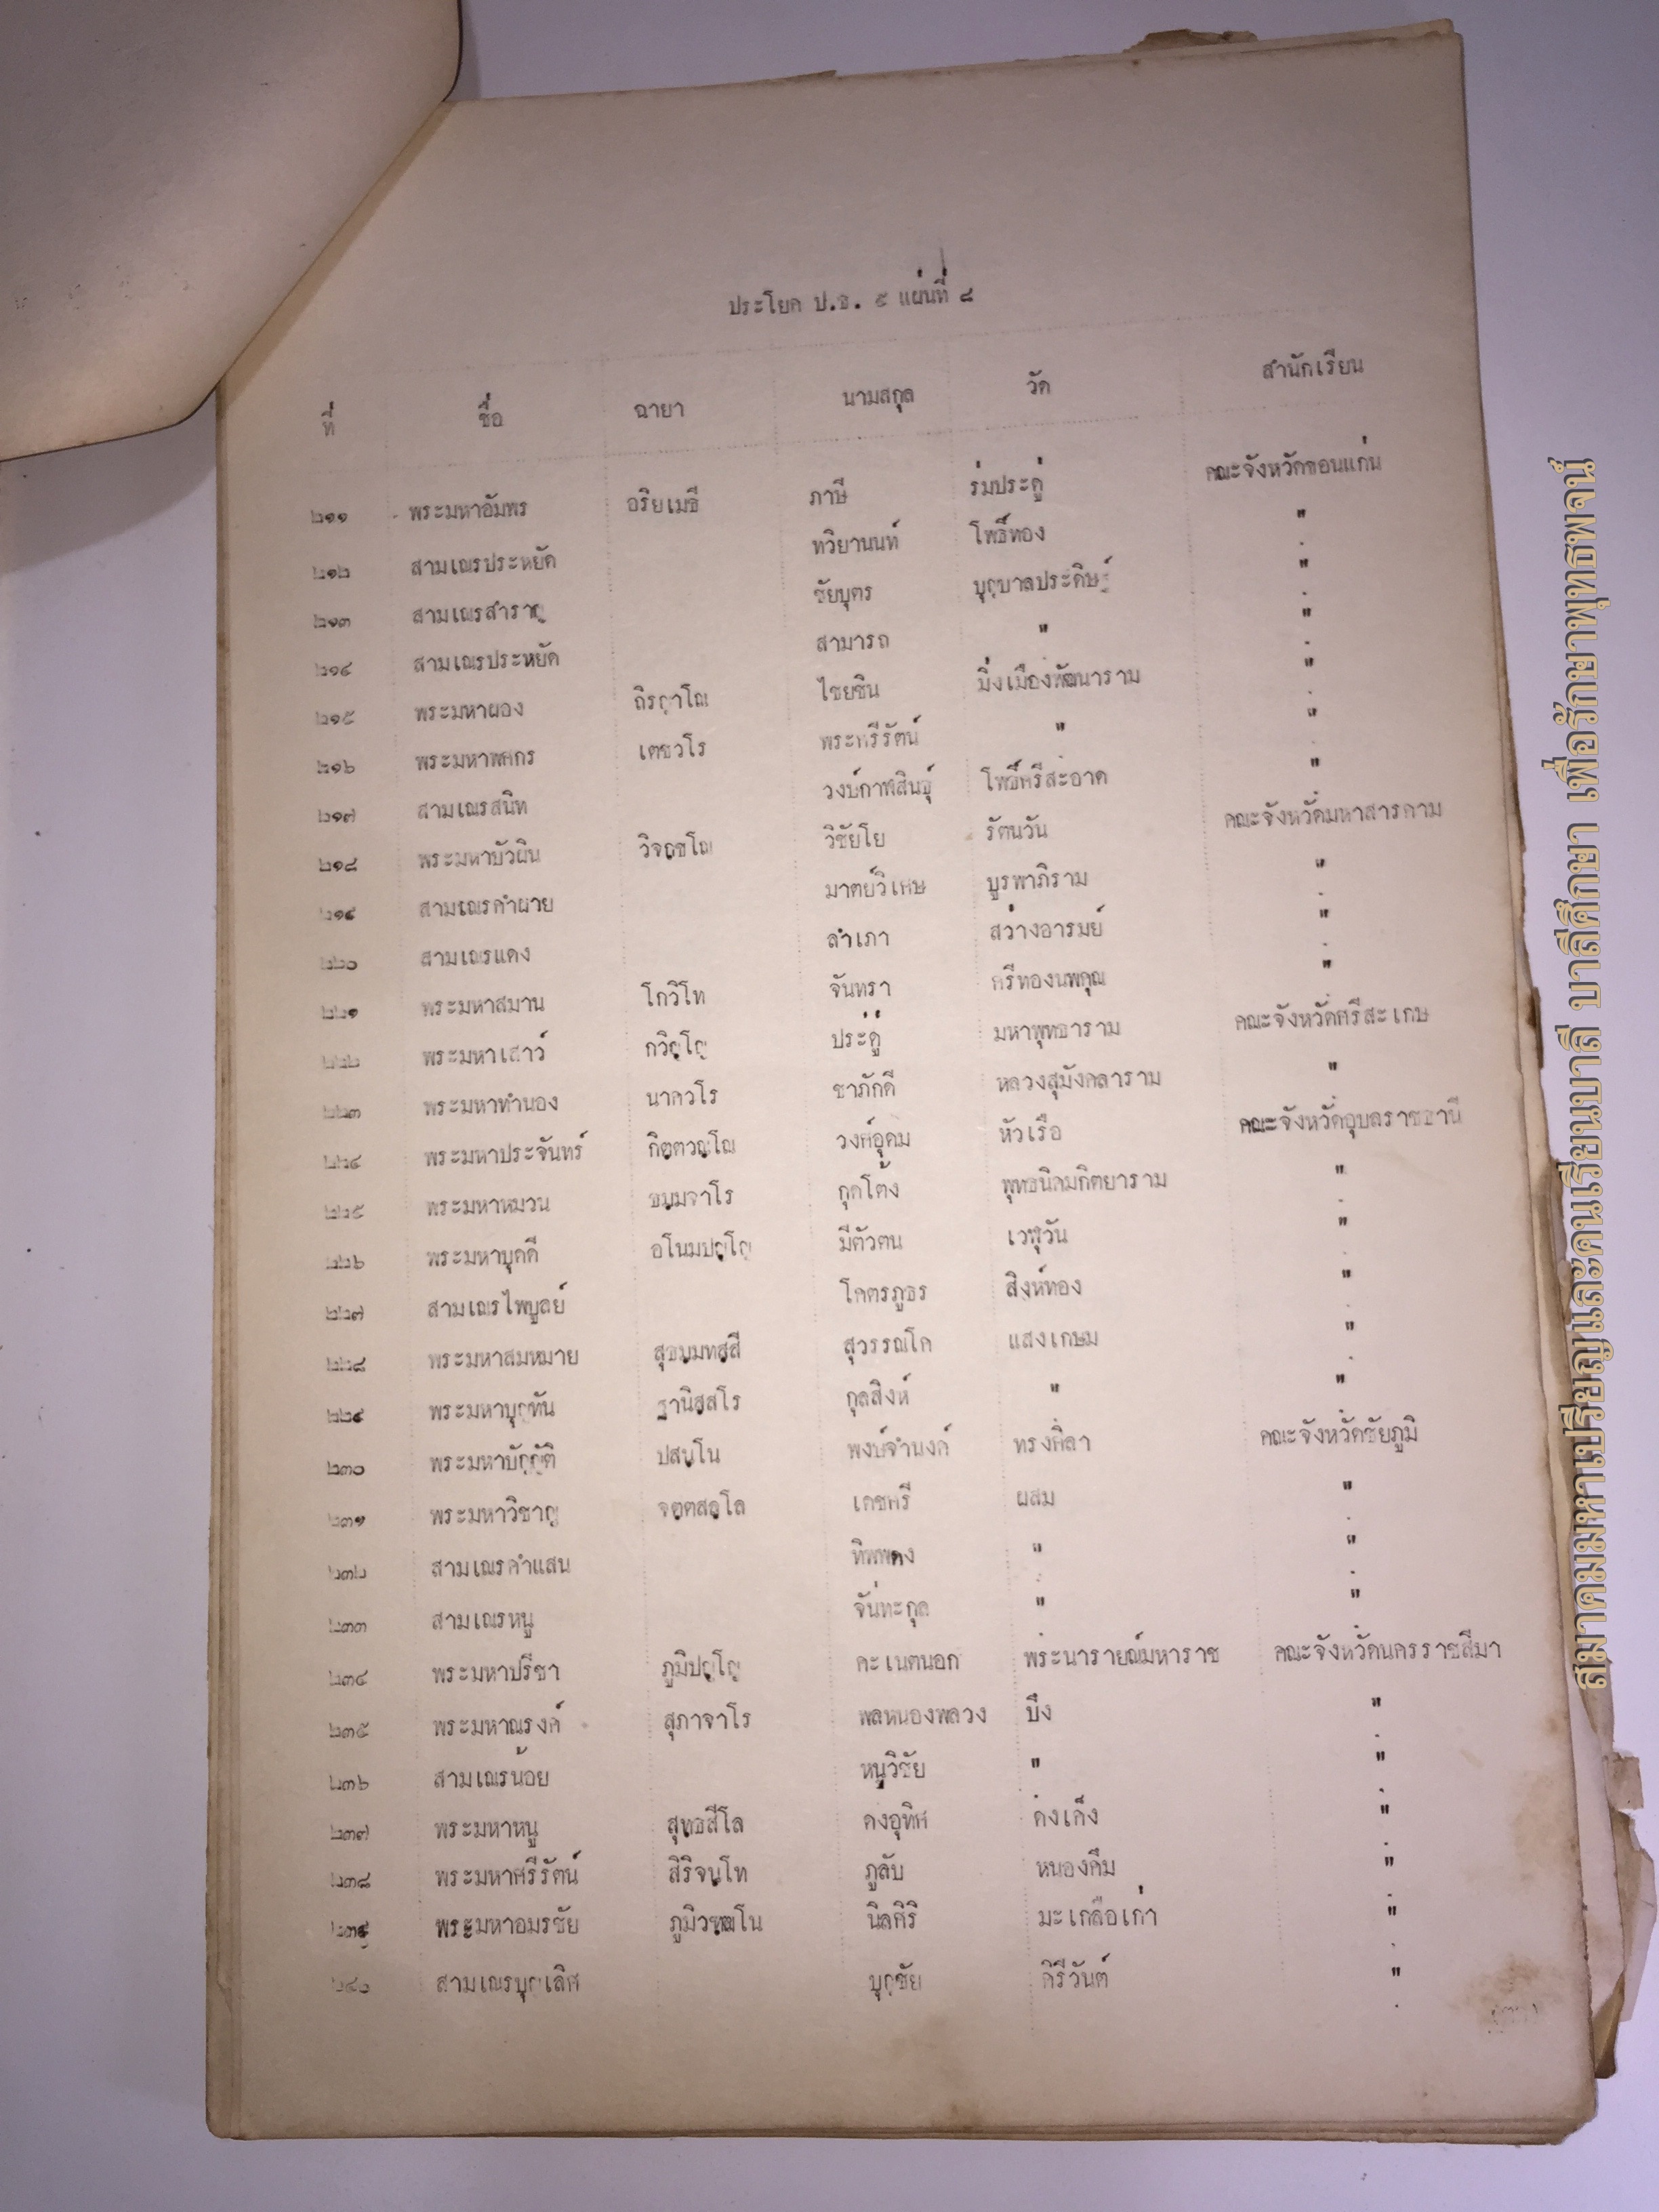 ประโยค ป.ธ. ๕ แผ่นที่ ๘
ที่ ชื่อ ฉายา นามสกุล วัด สำนักเรียน
๒๑๑ พระมหาอัมพร อริยเมธี ภาษี ร่มประดู่ คณะจังหวัดขอนแก่น
๒๑๒ สามเณรประหยัด ทวิยานนท์ โพธิ์ทอง "
๒๑๓ สามเณรสำราญ ชัยบุตร บุญบาลประดิษฐ์ "
๒๑๔ สามเณรประหยัด สามารถ " "
๒๑๕ พระมหาผอง ถิรญาโณ ไชยชิน มิ่งเมืองพัฒนาราม "
๒๑๖ พระมหาพศกร เตชวโร พระศรีรัตน์ " "
๒๑๗ สามเณรสนิท วงษ์กาฬสินธุ์ โพธิ์ศรีสะอาด "
๒๑๘ พระมหาบัวผิน วิชัยโย รัตนวัน คณะจังหวัดมหาสารคาม
๒๑๙ สามเณรคำผาย มาตย์วิเศษ บูรพาภิราม "
๒๒๐ สามเณรแดง ลำเภา สว่างอารมย์ "
๒๒๑ พระมหาสมาน โกวิโท จันทรา ศรีทองนพคุณ "
๒๒๒ พระมหาเสาว์ กวิญฺโญ ประดู่ มหาพุทธาราม คณะจังหวัดศรีสะเกษ
๒๒๓ พระมหาทำนอง นาควโร ชาภักดี หลวงสุมังคลาราม "
๒๒๔ พระมหาประจันทร์ กิตฺตวณฺโณ วงศ์อุดม หัวเรือ คณะจังหวัดอุบลราชธานี
๒๒๕ พระมหาหมวน ธมฺมจาโร กุดโต้ง พุทธนิคมกิตยาราม "
๒๒๖ พระมหาบุคดี อโนมปญฺโญ มีตัวตน เวฬุวัน "
๒๒๗ สามเณรไพบูลย์ โคตรภูธร สิงห์ทอง "
๒๒๘ พระมหาสมหมาย สุธมฺมทสฺสี สุวรรณโค แสงเกษม "
๒๒๙ พระมหาบุญทัน ฐานิสฺสโร กุลสิงห์ " "
๒๓๐ พระมหาบัญญัติ ปสนฺโน พงษ์จำนงค์ ทรงศิลา คณะจังหวัดชัยภูมิ
๒๓๑ พระมหาวิชาญ จตฺตสลฺโล เดชศรี ผสม "
๒๓๒ สามเณรคำแสน " "
๒๓๓ สามเณรหนู จันทะกุล " "
๒๓๔ พระมหาปรีชา ภูมิปญฺโญ คะเนตนอก พระนารายณ์มหาราช คณะจังหวัดนครราชสีมา
๒๓๕ พระมหาณรงค์ สุภาจาโร พลหนองพลวง บึง "
๒๓๖ สามเณรน้อย หนูวิชัย " "
๒๓๗ พระมหาหนู สุทฺธสีโล คงอุทิศ ดงเค็ง "
๒๓๘ พระมหาศรีรัตน์ สิริจนฺโท ภูลับ หนองคึม "
๒๓๙ พระมหาอมรชัย ภูมิวฑฺฒโน นิลศิริ มะเกลือเก่า "
๒๔๐ สามเณรบุญเลิศ บุญชัย คิรีวันต์ "
สมาคมมหาเปรียญและคนเรียนบาลี บาลีศึกษา เพื่อรักษาพุทธพจน์